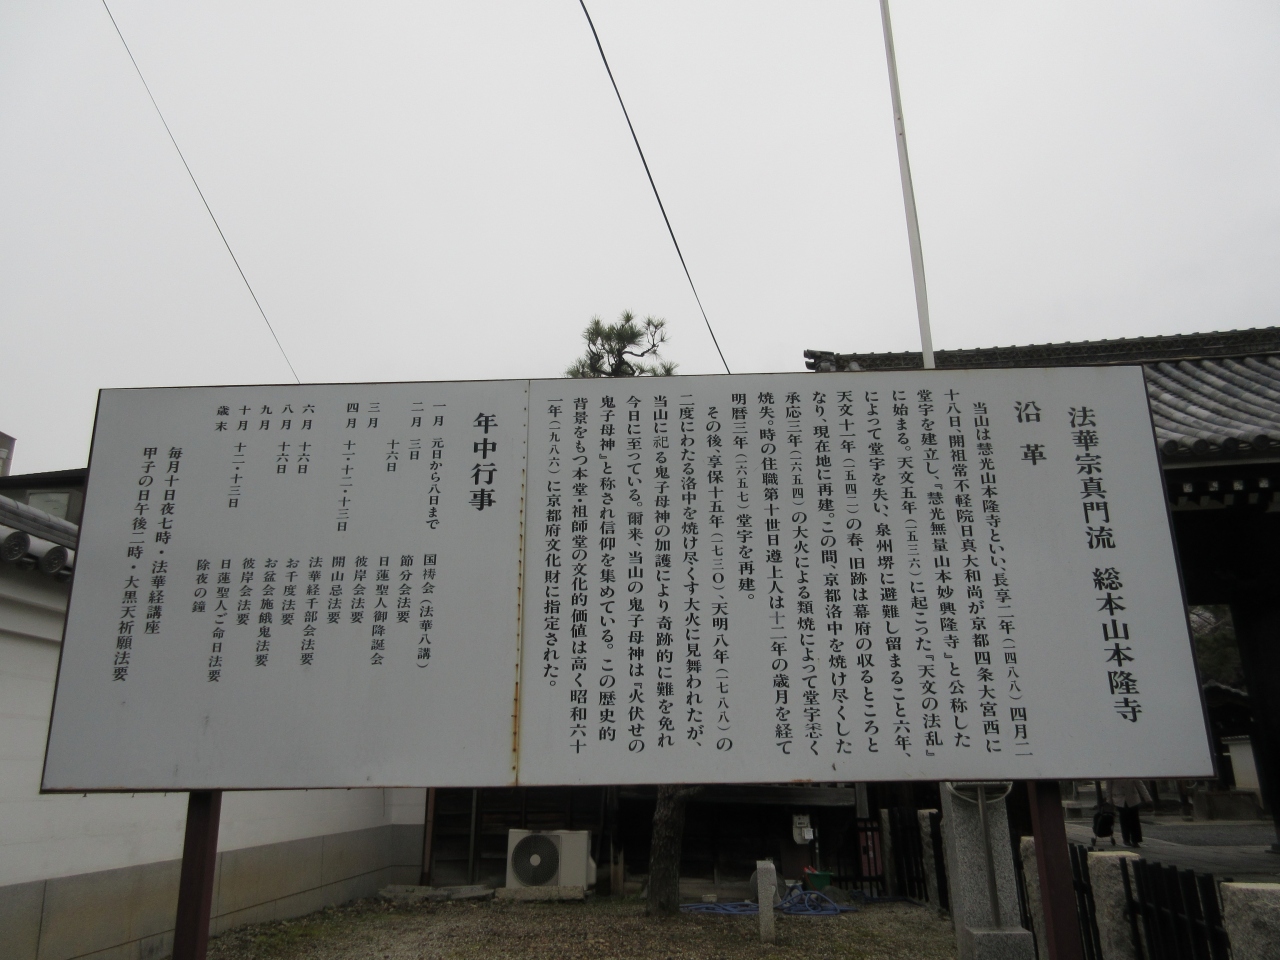 法華宗真門流 総本山本隆寺
沿革
当山は慧光山本隆寺といい、長享二年(一四八八)四月二
十八日、開祖常不軽院日真大和尚が京都四条大宮西に
堂宇を建立し、『慧光無量山本妙興隆寺』と公称した
に始まる。天文五年(一五三六)に起こった『天文の法乱』
によって堂宇を失い、泉州堺に避難し留まること六年、
天文十一年(一五四二)の春、旧跡は幕府の収るところと
なり、現在地に再建。この間、京都洛中を焼け尽くした
承応三年(一六五四)の大火による類焼によって堂宇悉く
焼失。時の住職第十世日遵上人は十二年の歳月を経て
明暦三年(一六五七)堂宇を再建。
その後、享保十五年(一七三〇)、天明八年(一七八八)の
二度にわたる洛中を焼け尽くす大火に見舞われたが、
当山に祀る鬼子母神の加護により奇跡的に難を免れ
今日に至っている。爾来、当山の鬼子母神は『火伏せの
鬼子母神』と称され信仰を集めている。この歴史的
背景をもつ本堂・祖師堂の文化的価値は高く昭和六十
一年(一九八六)に京都府文化財に指定された。
年中行事
一月 元日から八日まで 国祷会(法華八講)
二月 三日 節分会法要
十六日 日蓮聖人御降誕会
三月 彼岸会法要
四月 十一・十二・十三日 開山忌法要
法華経千部会法要
六月 十六日 お千度法要
八月 十六日 お盆会施餓鬼法要
九月 彼岸会法要
十月 十二・十三日 日蓮聖人ご命日法要
歳末 除夜の鐘
毎月十日夜七時・法華経講座
甲子の日午後二時・大黒天祈願法要